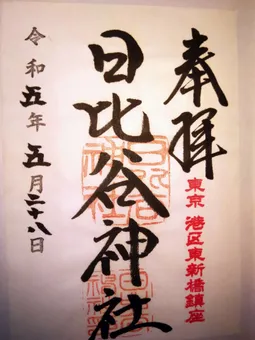 奉拝
東京 港区東新橋鎮座
日比谷神社
令和五年五月二十八日